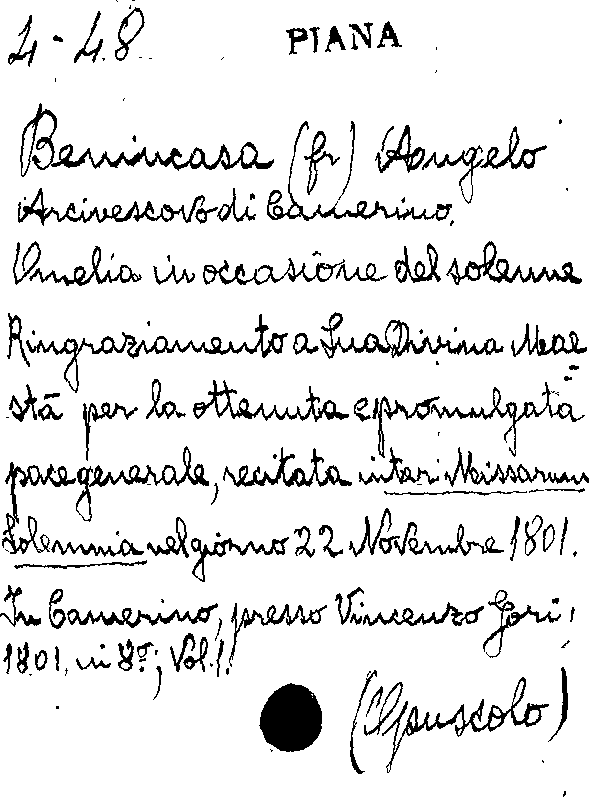 4-48 PIANA
Benincasa (fr) Angelo
Arcivescovo di Camerino.
Omelia in occasione del solenne
Ringraziamento a Sua Divina Mae=
stà per la ottenuta e promulgata
pace generale, recitata inter Missarum
Solemnia nel giorno 22 Novembre 1801.
In Camerino, presso Vincenzo Gori,
1801, in 8º; Vol. 1.
(Opuscolo)